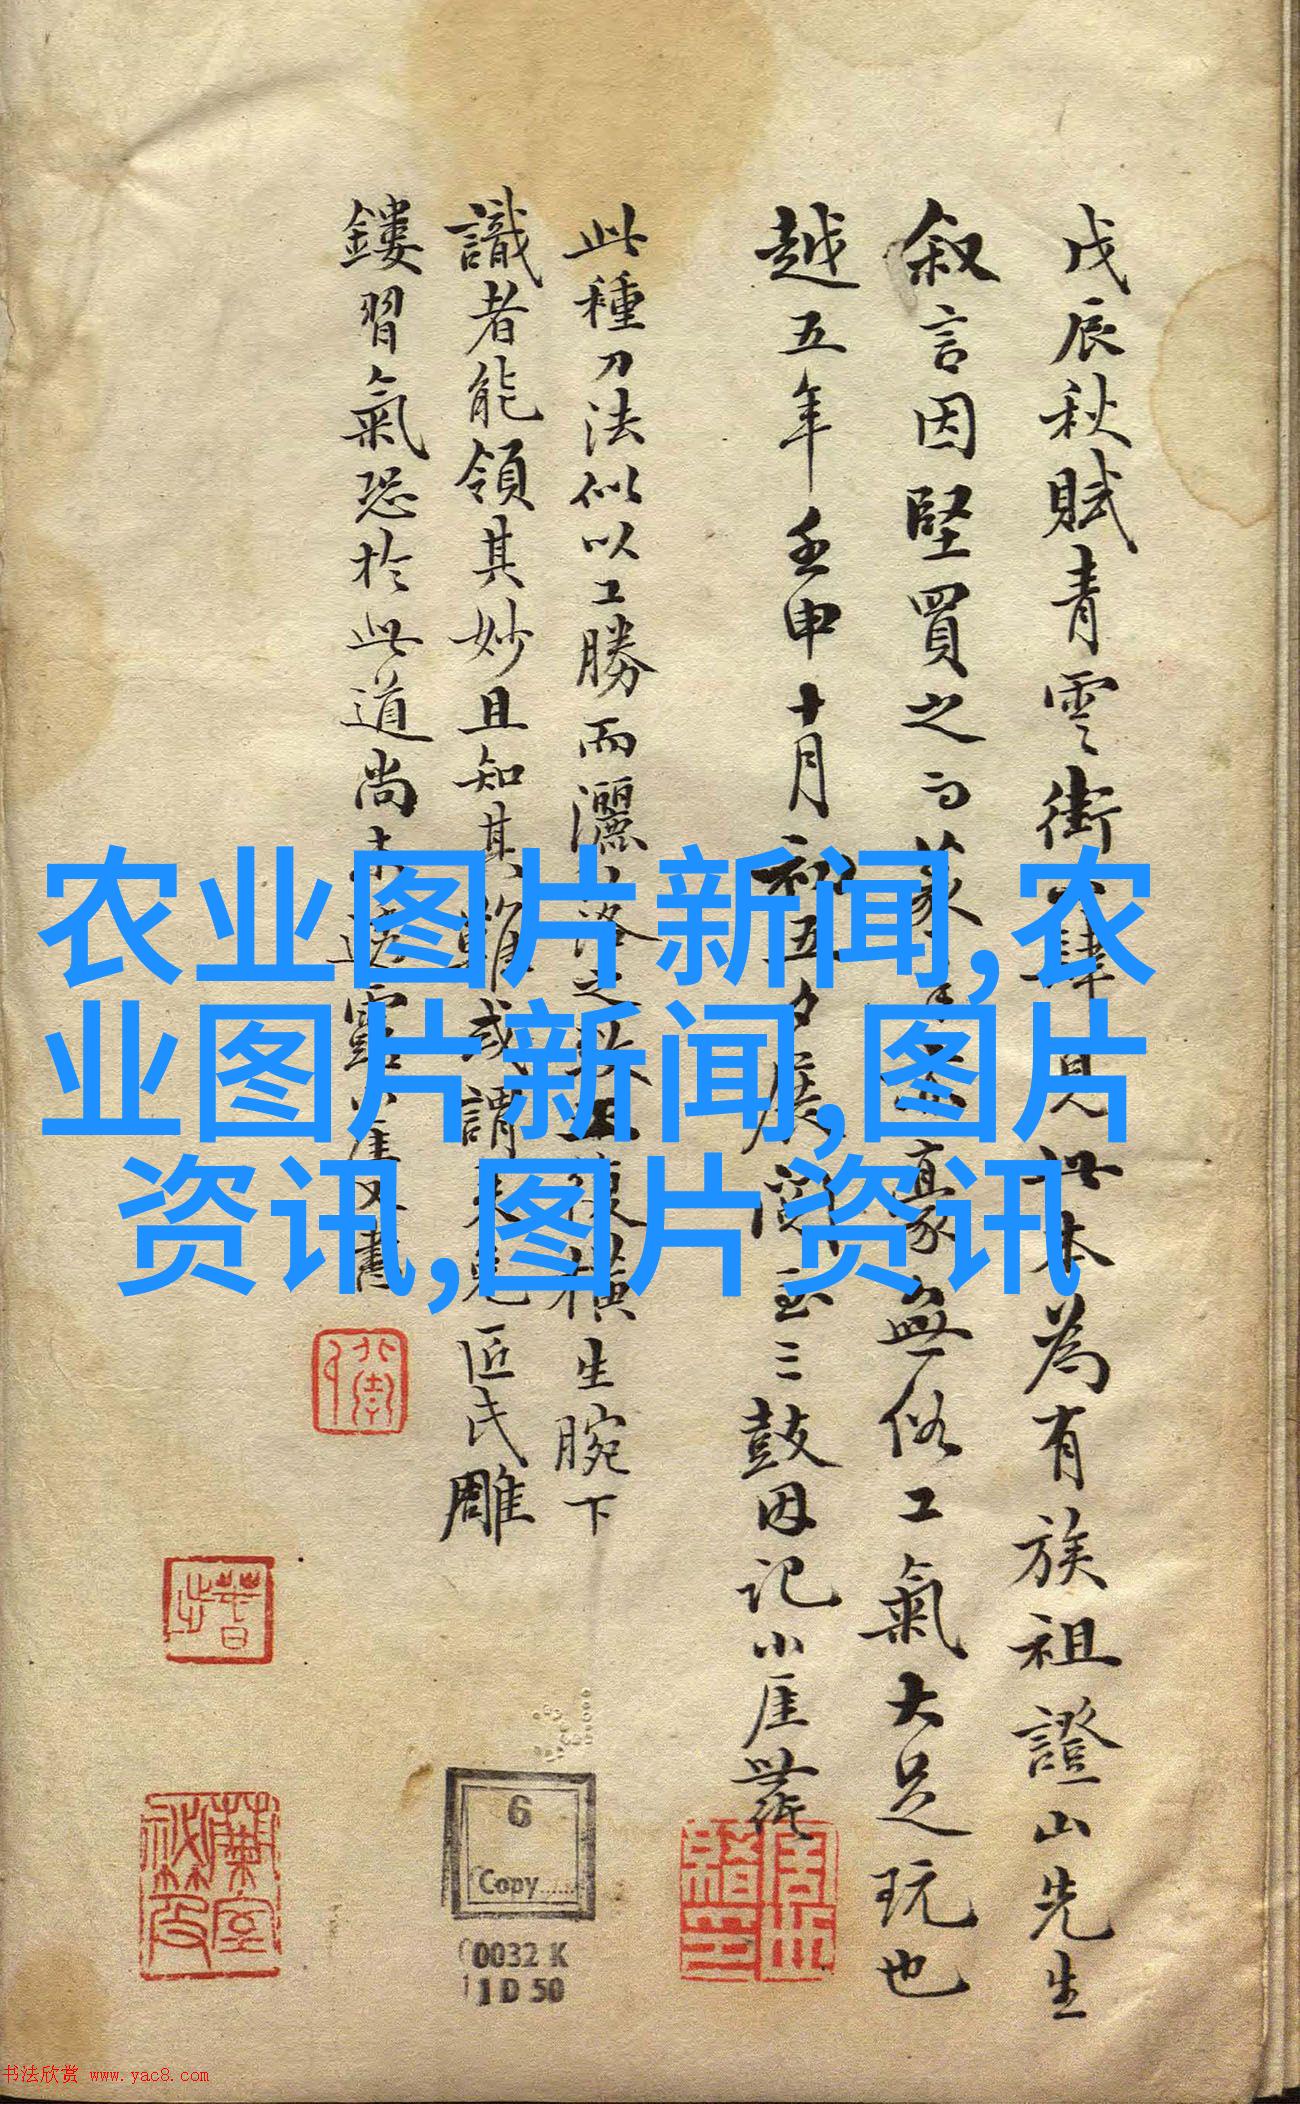 戊辰秋賦青雲街見此本為有族祖證山先生
叙言因堅買之篆豪無俗工氣大足玩也
越五年壬申十月初五夕展閱至三鼓因記小厓
此種刀法似以工勝而灑落之致橫生腕下
識者能領其妙且知其難或謂未免匠氏雕
鏤習氣恐於此道尚未
农业图片新闻,农
业图片新闻,图片
资讯,图片资讯
6
Copy
0032 K
1 D 50
书法欣赏 www.yac8.com